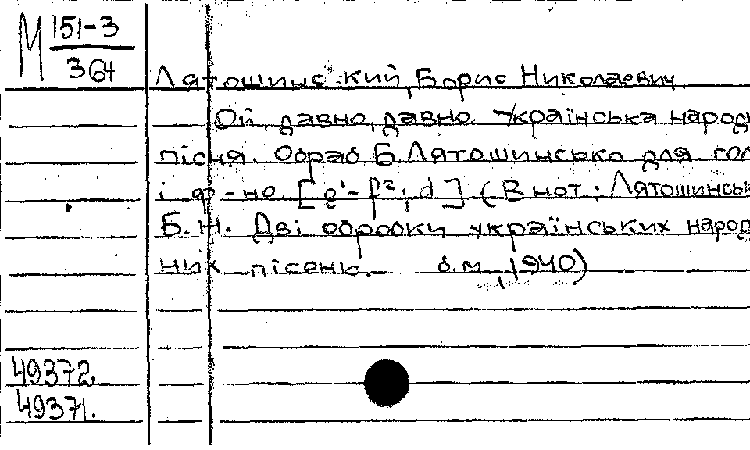 М 151-3
364
Лятошинський, Борис Николаевич
Ой давно, давно. Українська народ
пісня. Обраб Б. Лятошинсько для гол
і ф-но [e'-f²; d] (В нот: Лятошинськ
Б.Н. Дві обробки українських народ
них пісень. б.м., 1940)
49372.
49371.